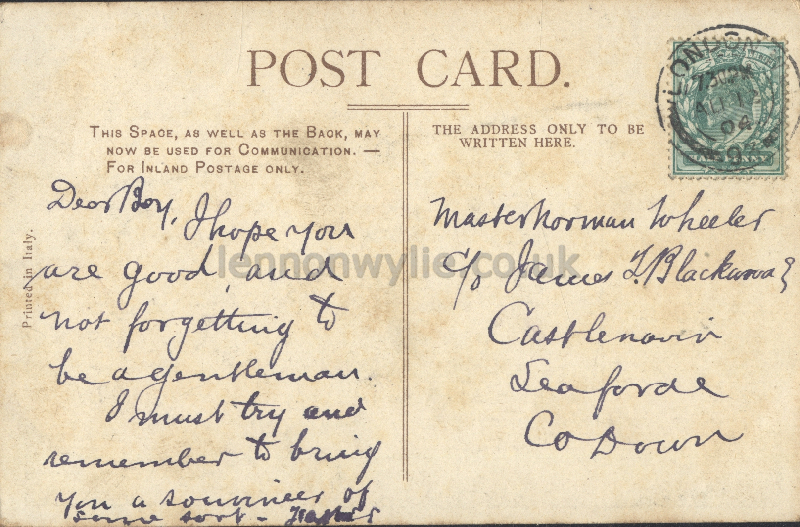 POST CARD.
THIS SPACE, AS WELL AS THE BACK, MAY
NOW BE USED FOR COMMUNICATION. —
FOR INLAND POSTAGE ONLY.
THE ADDRESS ONLY TO BE
WRITTEN HERE.
LONDON
04
ONE PENNY
Printed in Italy.
Dear Boy,
I hope you
are good, and
not forgetting to
be a gentleman.
I must try and
remember to bring
you a souvineer of
some sort -
Master Norman Wheeler
c/o James T. Blackwood
Castlenavin
Seaforde
Co Down
lennonwylie.co.uk